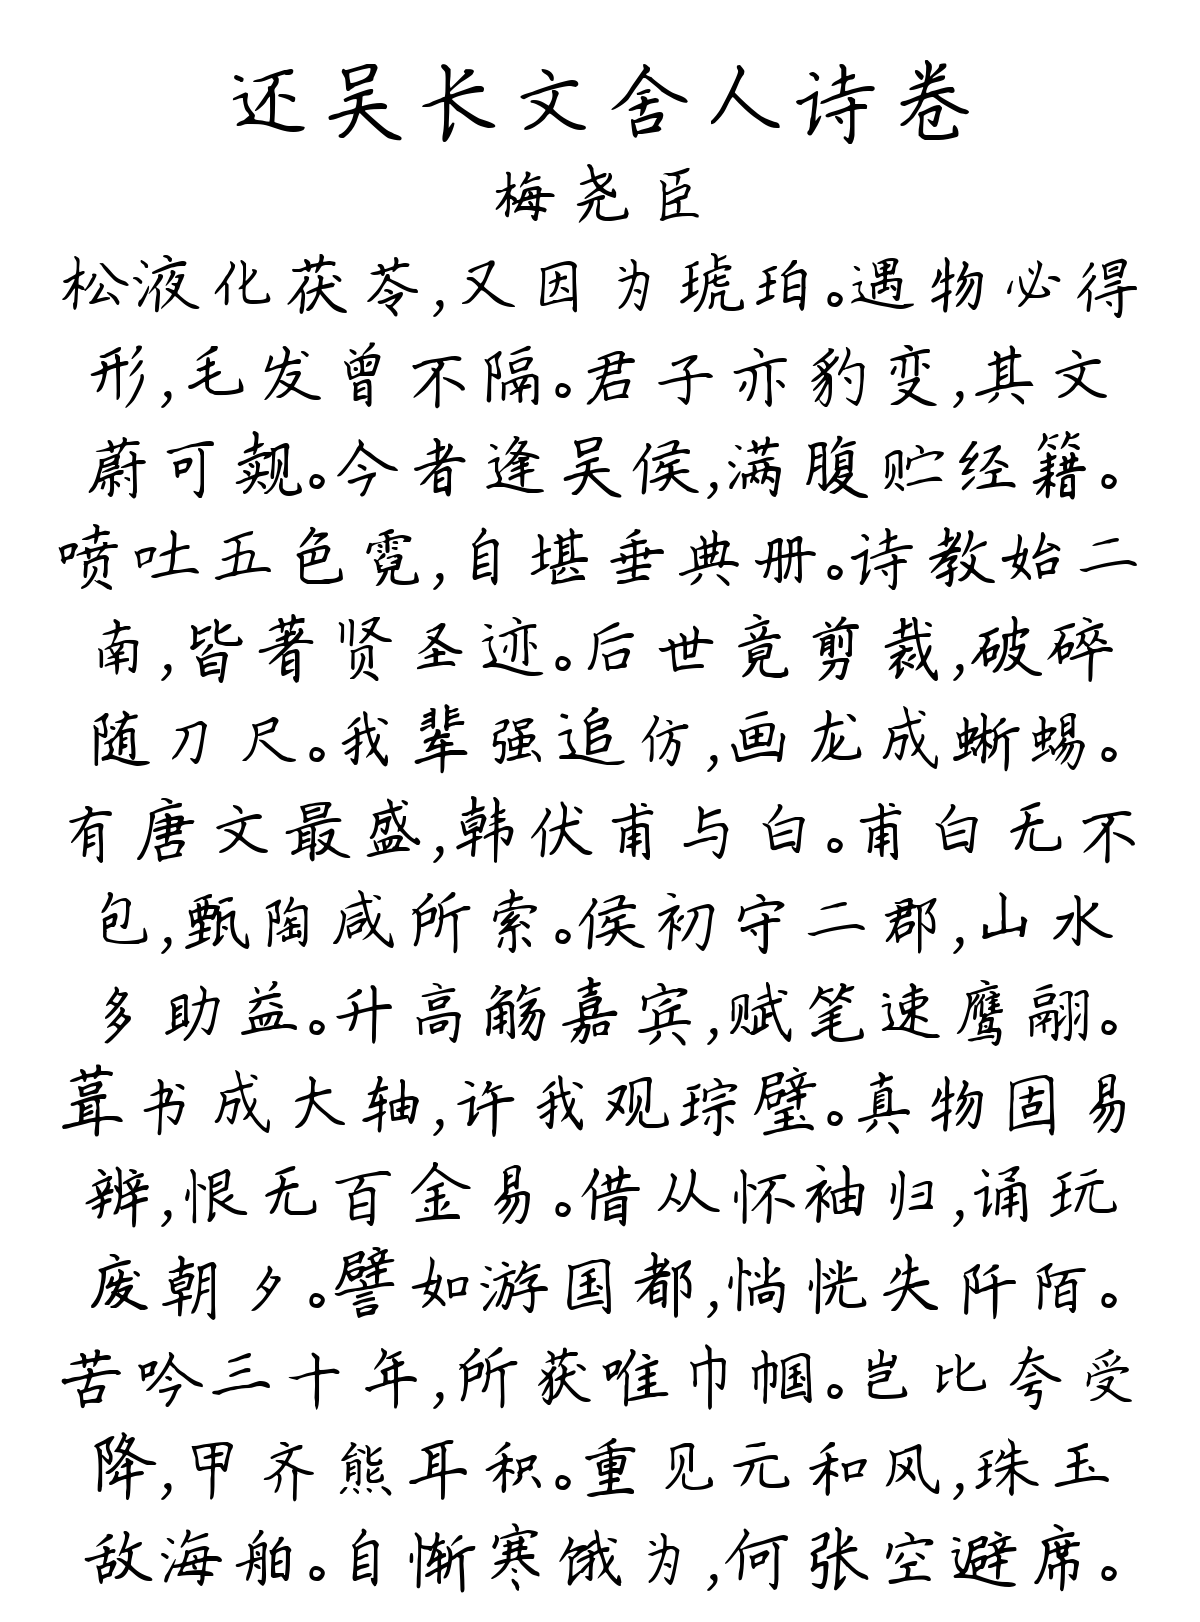 还吴长文舍人诗卷
梅尧臣
松液化茯苓,又因为琥珀。遇物必得
形,毛发曾不隔。君子亦豹变,其文
蔚可觌。今者逢吴侯,满腹贮经籍。
喷吐五色霓,自堪垂典册。诗教始二
南,皆著贤圣迹。后世竟剪裁,破碎
随刀尺。我辈强追仿,画龙成蜥蜴。
有唐文最盛,韩伏甫与白。甫白无不
包,甄陶咸所索。侯初守二郡,山水
多助益。升高觞嘉宾,赋笔速鹰翮。
葺书成大轴,许我观琮璧。真物固易
辨,恨无百金易。借从怀袖归,诵玩
废朝夕。譬如游国都,惝恍失阡陌。
苦吟三十年,所获唯巾帼。岂比夸受
降,甲齐熊耳积。重见元和风,珠玉
敌海舶。自惭寒饿为,何张空避席。